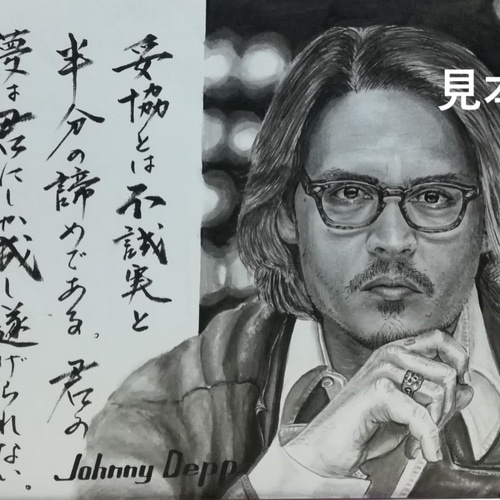 妥協とは不誠実と
半分の諦めである。君の
夢は君にしか成し遂げられない。
Johnny Depp
見本